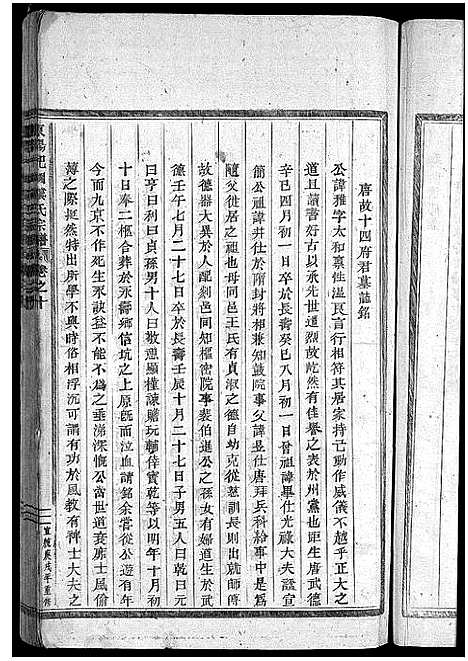 唐故十四府君墓誌銘
公諱雅字太和稟性溫良言行相符其居家持己動作威儀不越乎正大之
道且讀書好古以承先世遺烈故屹然有佳譽之表於州黨也距生唐武德
辛巳四月初一日卒於長壽癸巳八月初一日晉祖諱畢仕光祿大夫諡宣
簡公祖諱并仕於隋封將相知鼓院事父諱昱仕唐拜兵科給事中是爲
隨父徙居之祖也母同邑王氏有貞淑之德自幼克從慈訓長則出就師傅
故德器大異於人配剡邑同知樞密院事裴伯進公之孫女有婦道生於武
德壬午七月二十七日卒於長壽壬辰十月二十七日子男五人曰乾曰元
曰亨曰利曰貞孫男十人曰敬憑顯橦諫贍玩輔倖實乾等以明年十月初
十日奉二柩合葬於永壽鄉信坑之上原旣而泣血請銘余嘗從公遊有年
今而九京不作生死訣益不能不爲之垂涕深慨公當世道衰席士風偷
薄之際挺然特出所學不與時俗相浮沉可謂有功於風教有裨士大夫之
東陽𥙿州婁氏宗譜 卷之十
宣統庚戌年重修